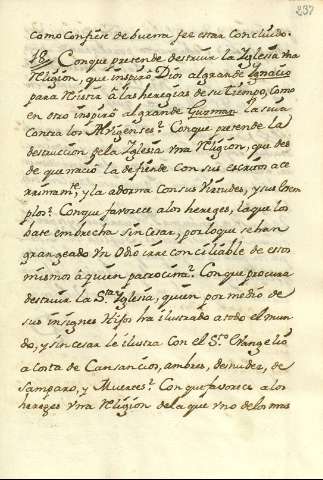 237
como confiese de buena fee estar Concluido.
18. Conque pretende destruir la Iglesia vna
Religion, que inspiró Dios al grande Ignacio
para resistir à las heregias de su Tiempo, como
en otro inspiró al grande Guzman la suia
contra los Alvigenses? Conque pretende la
destruccion de la Iglesia vna Religion, que des
de que nació la defiende con sus escritos ace
rrimamte, y la adorna con sus virtudes, y sus Exem
plos? Conque favorece a los hereges, la que los
bate en brecha sin cesar, por lo que se han
grangeado vn Odio irreconciliable de estos
mismos à quien patrocina? Con que procura
destruir la Sta Iglesia, quien por medio de
sus insignes Hijos ha ilustrado a todo el mun
do, y sin cesar le ilustra con el Sto Evangelio
a costa de Cansancios, ambres, desnudez, de
samparo, y Muertes? Con que favorece a los
hereges vna Religion de la que vno de los mas